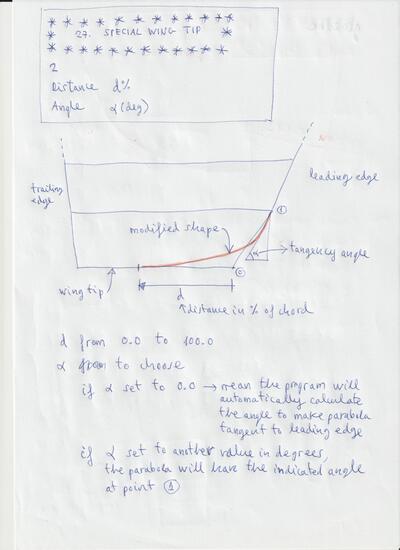 * * * * * * * * * * * *
* 27. SPECIAL WING TIP *
* * * * * * * * * * * *
2
Distance d%
Angle α (deg)
trailing edge
leading edge
modified shape
1
α
tangency angle
wing tip
d
distance in % of chord
d from 0.0 to 100.0
α to choose
if α set to 0.0 → mean the program will
automatically calculate
the angle to make parabola
tangent to leading edge
if α set to another value in degrees,
the parabola will have the indicated angle
at point 1